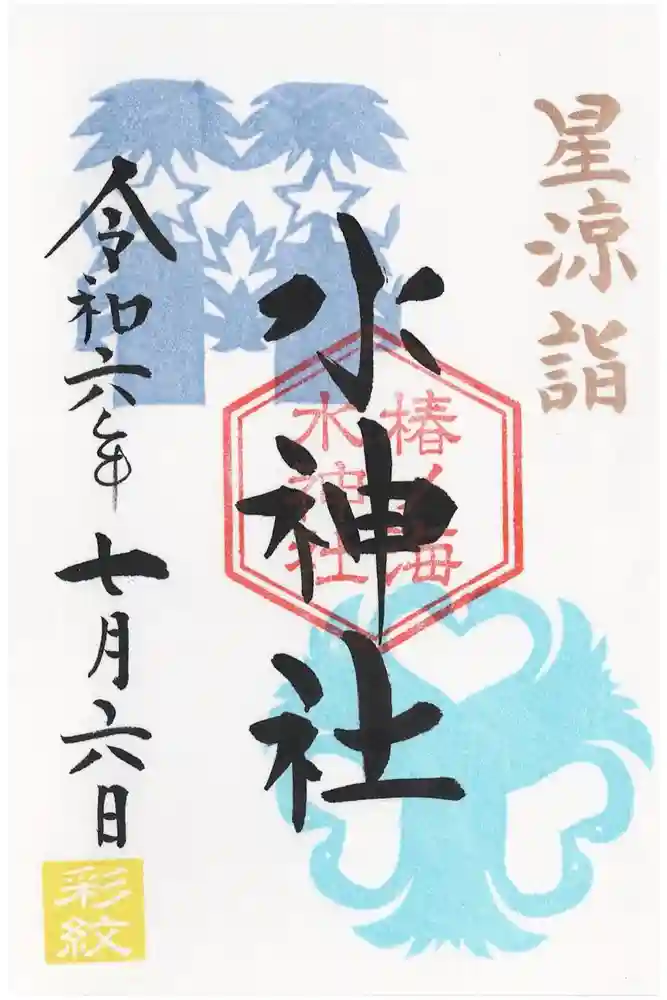 星涼詣
水神社
椿ノ海
水神社
令和六年七月六日
彩紋